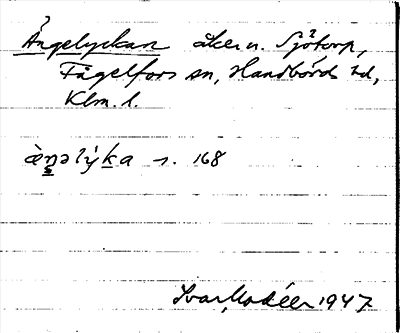 Ängelyckan åker u. Sjötorp,
Fågelfors sn, Handbörd hd,
Klm. l.
àŋəlýka s. 168
Ivar Modéer 1947